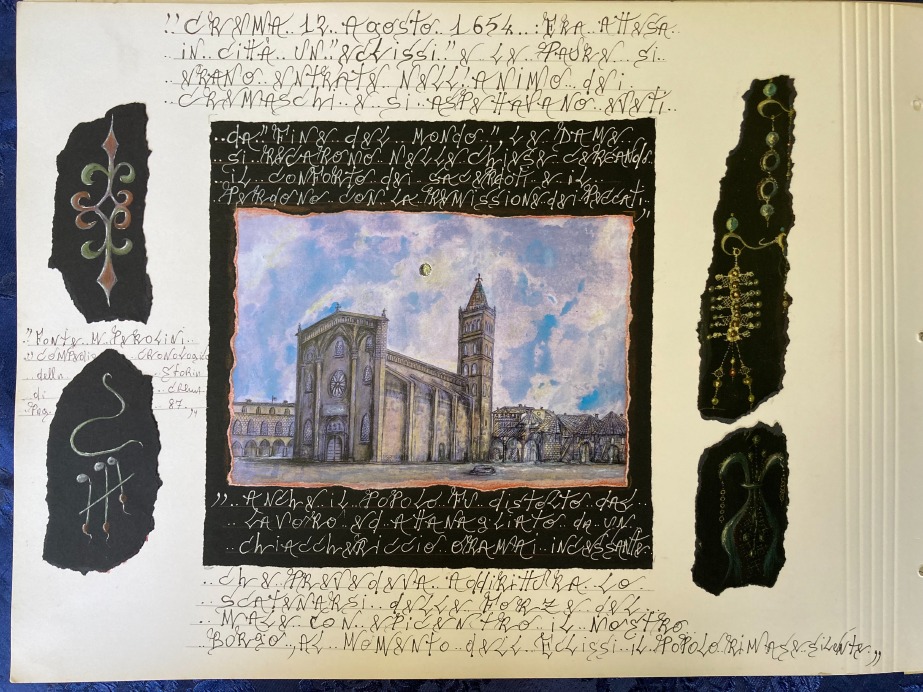 „CREMA 12 Agosto 1654... ERA ATTESA
IN CITTÀ UN "ECLISSI" E LE PAURE SI
ERANO ENTRATE NELL'ANIMO DEI
CREMASCHI E SI ASPETTAVANO EVENTI..
..DA "FINE DEL MONDO", LE DAME
SI RECARONO NELLE CHIESE CERCANDO
IL CONFORTO DEI SACERDOTI E IL
PERDONO CON LA REMISSIONE DEI PECCATI..”
„FONTE M. PEROLINI
"COMPENDIO CRONOLOGICO
della STORIA
di CREMA
Pag. 87.„
„ANCHE IL POPOLO FU DISTOLTO DAL
LAVORO ED ATTANAGLIATO DA UN
CHIACCHERICCIO ORAMAI INCESSANTE
CHE PREVEDEVA ADDIRITTURA LO
SCATENARSI DELLE FORZE DEL
MALE CON EPICENTRO IL NOSTRO
BORGO, AL MOMENTO DELL'ECLISSI IL POPOLO RIMASE SILENTE„